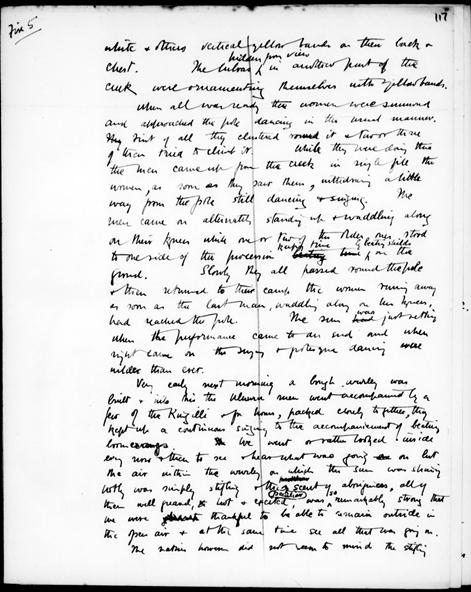 Fix 5
117
white & others vertical yellow bands on their back or
hidden from view
chest. The in another part of the
creek were ornamenting themselves with yellow bands.
When all was ready the women were summoned
and approached the pole dancing in the usual manner.
First of all they clustered round it & two or three
of them tried to climb it. While they were doing this
the men came up from the creek in single file the
women, as soon as they saw them, withdrawing a little
way from the pole still dancing & singing. The
men came on alternately standing up & waddling along
on their knees while one or two of the older ones stood
keeping time by beating shields
to one side of the procession on the
ground. Slowly they all passed round the pole
& then returned to their camp the women running away
as soon as the last man, waddling along on his knees,
had reached the pole. The sun was just setting
when the performance came to an end and when
night came on the singing & grotesque dancing were
wilder than ever.
Very early next morning a bough wurley was
built & into this the men went accompanied by a
few of the & for hours, packed closely together, they
kept up a continuous singing to the accompaniment of beating
boomerangs. We went or rather looked inside
every now & then to see & hear what was going on but
the air within the wurley on which the sun was shining
hotly was simply stifling & the scent of aborigines, all of
them well greased, hot & excited, was so remarkably strong that
we were thankful to be able to remain outside in
the open air & at the same time see all that was going on.
The natives however did not seem to mind the stifling